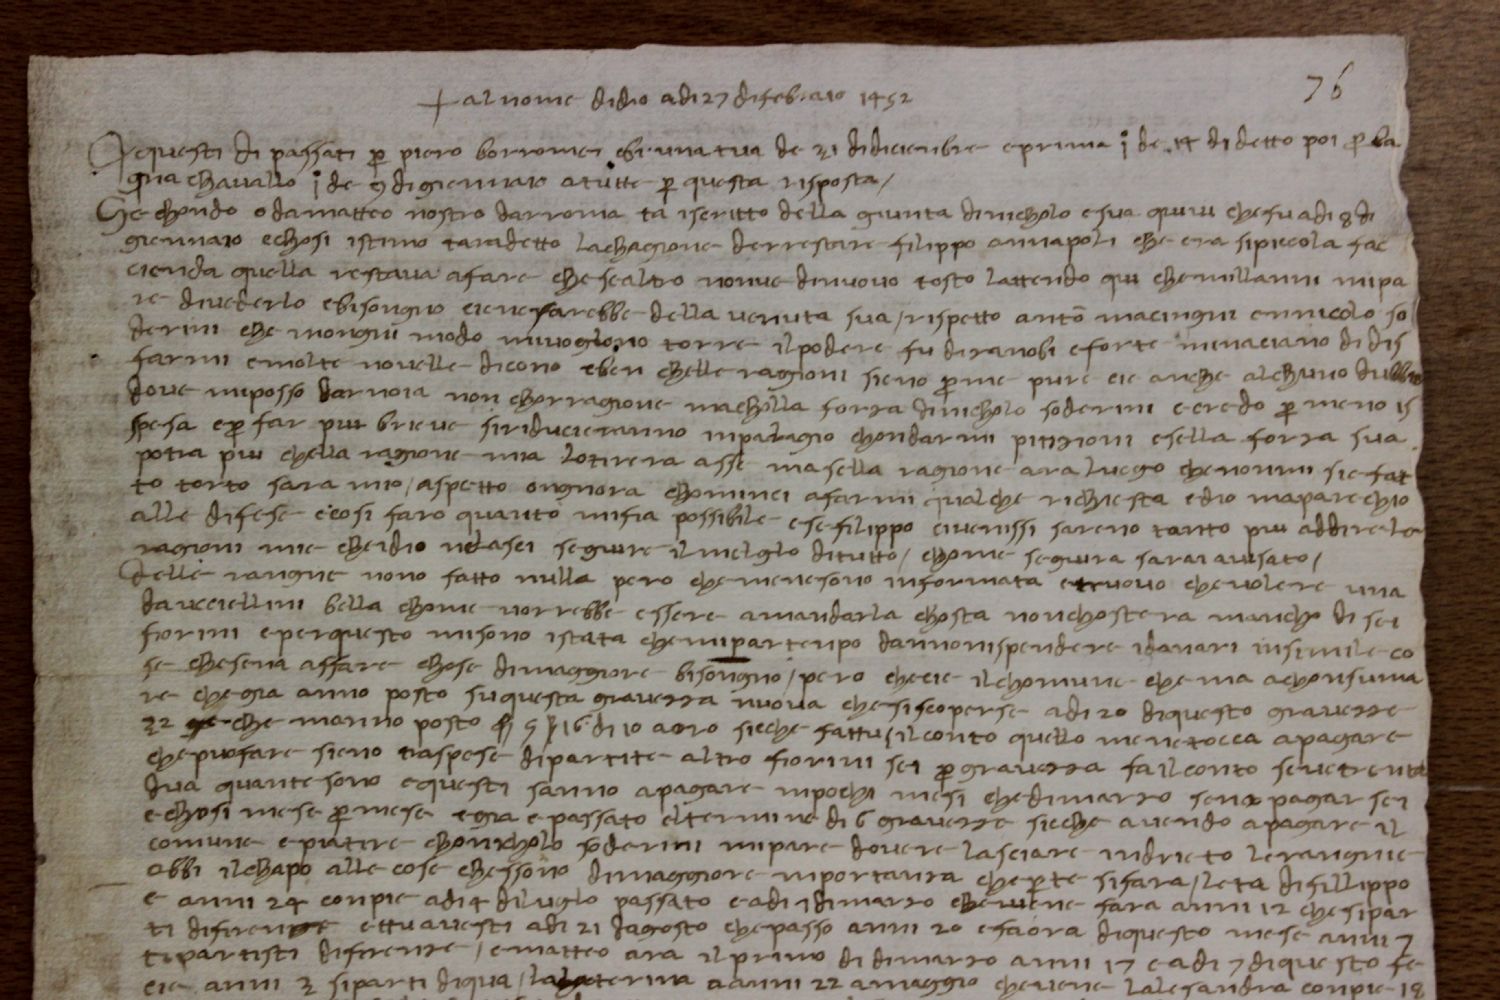 + al nome didio adi 27 difebraio 1452
76
Aequesti di passati p piero borromei ebi una tua de 21 didiciembre e prima i de 17 di detto poi p la
gna chavallo i de 9 digiennaio atutte p questa risposta /
Sechondo o damatteo nostro darroma ta iscritto della giunta dinicholo esua quivi che fu adi 8 di
giennaio echosi istimo taradetto lachagione derrestare filippo annapoli che era si picola fac
cienda quella restava afare che sealtro nonve dinuovo tosto lattendo qui che millanni mipa
re divederlo ebisongno cienefarebbe della venuta sua / rispetto antō macingni enniccolo so
derini che inongni modo mivogliono torre ilpodere fu diranobi eforte minaciano di dis
farmi emolte novelle dicono eben chelle ragioni sieno p me pure cie anche alchuno dubbio
dove miposso dar noia non chorragione macholla forza dinicholo soderini e credo p meno is
spesa e p far piu brieve siriducieranno inpalagio chondarmi pitizioni esella forza sua
potra piu chella ragione mia lotirera asse masella ragione ara luogo chenonmi sie fat
to torto sara mio / aspetto ongnora chominci afarmi qualche richiesta edio mapparechio
alle difese ecosi faro quanto mifia possibile ese filippo civenissi sareno tantto piu addire le
ragioni mie cheidio nelasci seguire ilmelglo ditutto / chome seguira sarai avisato /
Delle rangne nono fatto nulla pero che menesono informata etruovo che volere una
daucciellini bella chome vorrebbe essere amandarla chosta nonchostera mancho di sei
fiorini eperquesto misono istata che mipar tenpo dannonispendere idanari insimile co
se chesena affare chose dimaggiore bisongno / pero checie ilchomune che ma achonsuma
re chegia anno posto suquesta gravezza nuova chesiscoperse adi 20 diquesto gravezze
22 che manno posto f 5 s 16 d 10 aoro sicche fattu ilconto quello menetocca apagare
chepuofare sieno traspese dipartite altro fiorini sei p gravezza fa ilconto seve trenta
dua quante sono equesti sanno apagare inpochi mesi chedimarzo sena pagar sei
echosi mese p mese egia epassato eltermine di 6 gravezze sicche avendo apagare il
comune epiatire chonicholo soderini mipare dovere lasciare indrieto lerangnie
abbi ilchapo alle cose chessono dimaggiore inportanza che p te sifara / leta difillippo
e anni 24 conpie adi 4 diluglo passato eadi 7 dimarzo cheviene fara anni 12 chesipar
ti difirenze ettu avesti adi 21 dagosto chepasso anni 20 efaora diquesto mese anni 7
tipartisti difirenze / ematteo ara ilprimo di dimarzo anni 17 eadi 7 diquesto fe
cie anni 3 siparti diqua / lachaterina a anni 22 amaggio cheviene lalesandra conpie 18